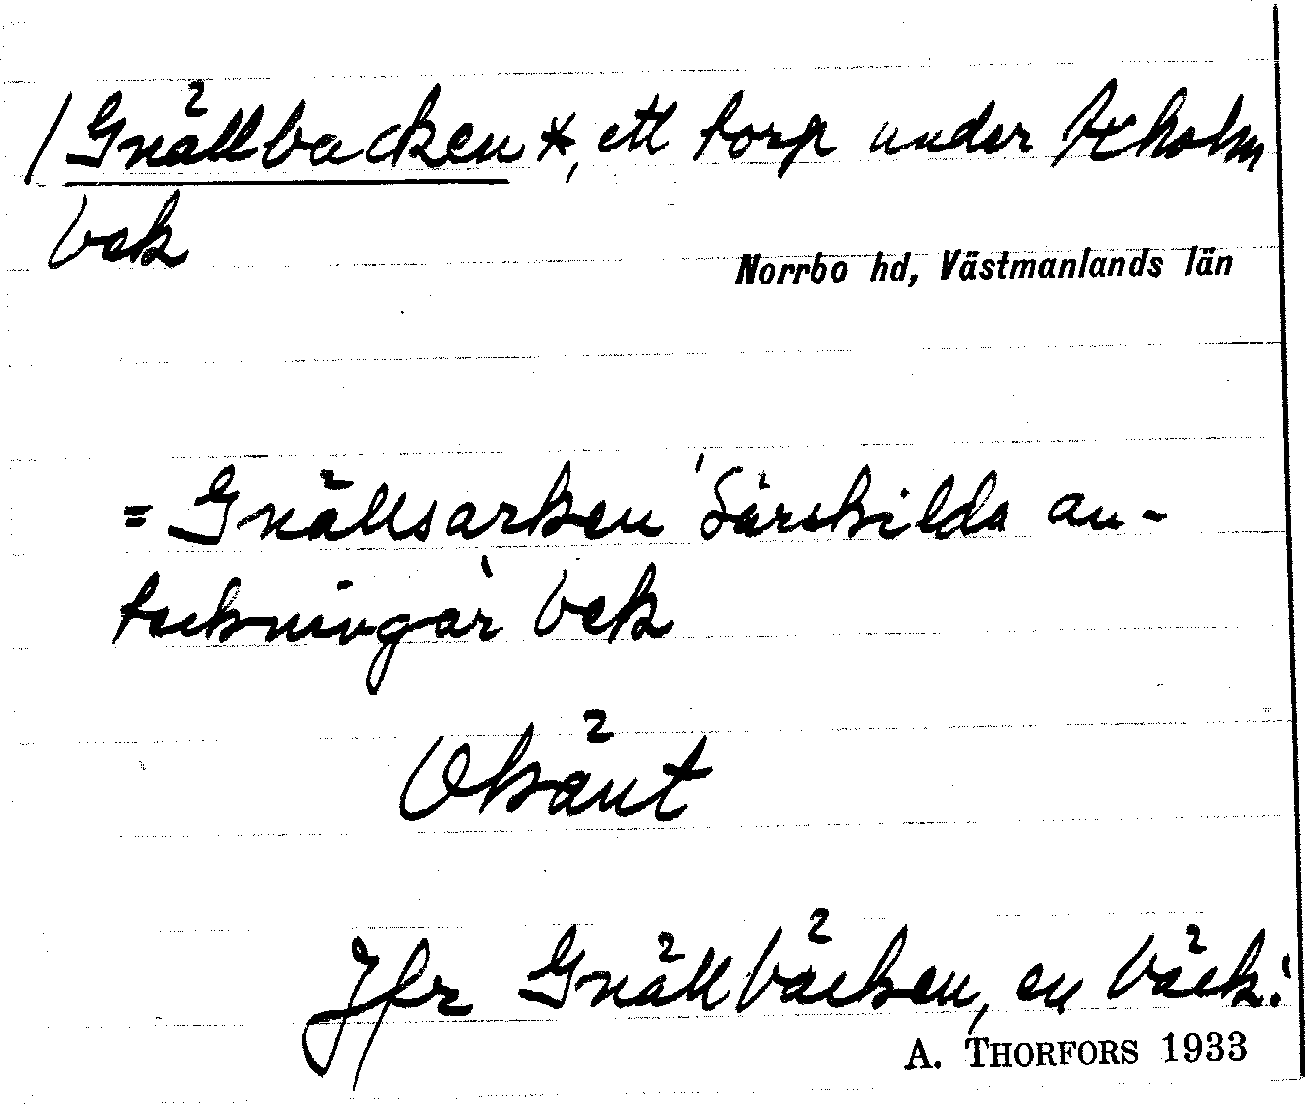 / Gnällbacken *, ett torp under Axholm
bek
Norrbo hd, Västmanlands län
= Gnällsarken 'Särskilda an-
teckningar' bek
Okänt
Jfr Gnällbäcken, en bäck!
A. THORFORS 1933